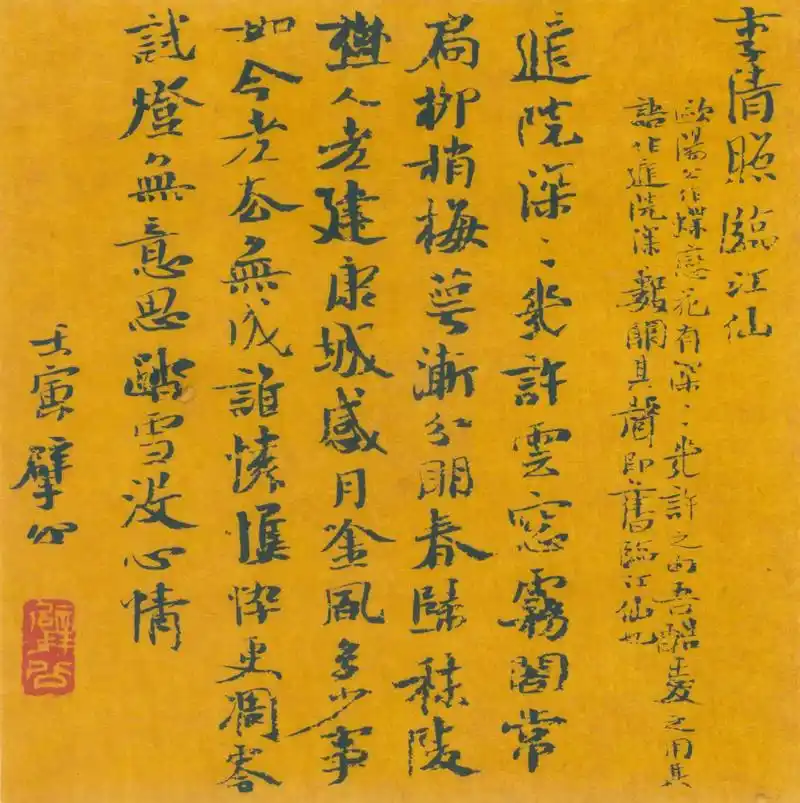 李清照臨江仙
歐陽公作蝶戀花有深〻幾許之句吾酷愛之用其
語作庭院深〻數闋其聲即舊臨江仙也
庭院深〻幾許雲窗霧閣常
扃柳梢梅萼漸分明春歸秣陵
樹人老建康城感月吟風多少事
如今老去無成誰憐憔悴更凋零
試燈無意思踏雪沒心情
壬寅擘公
擘公